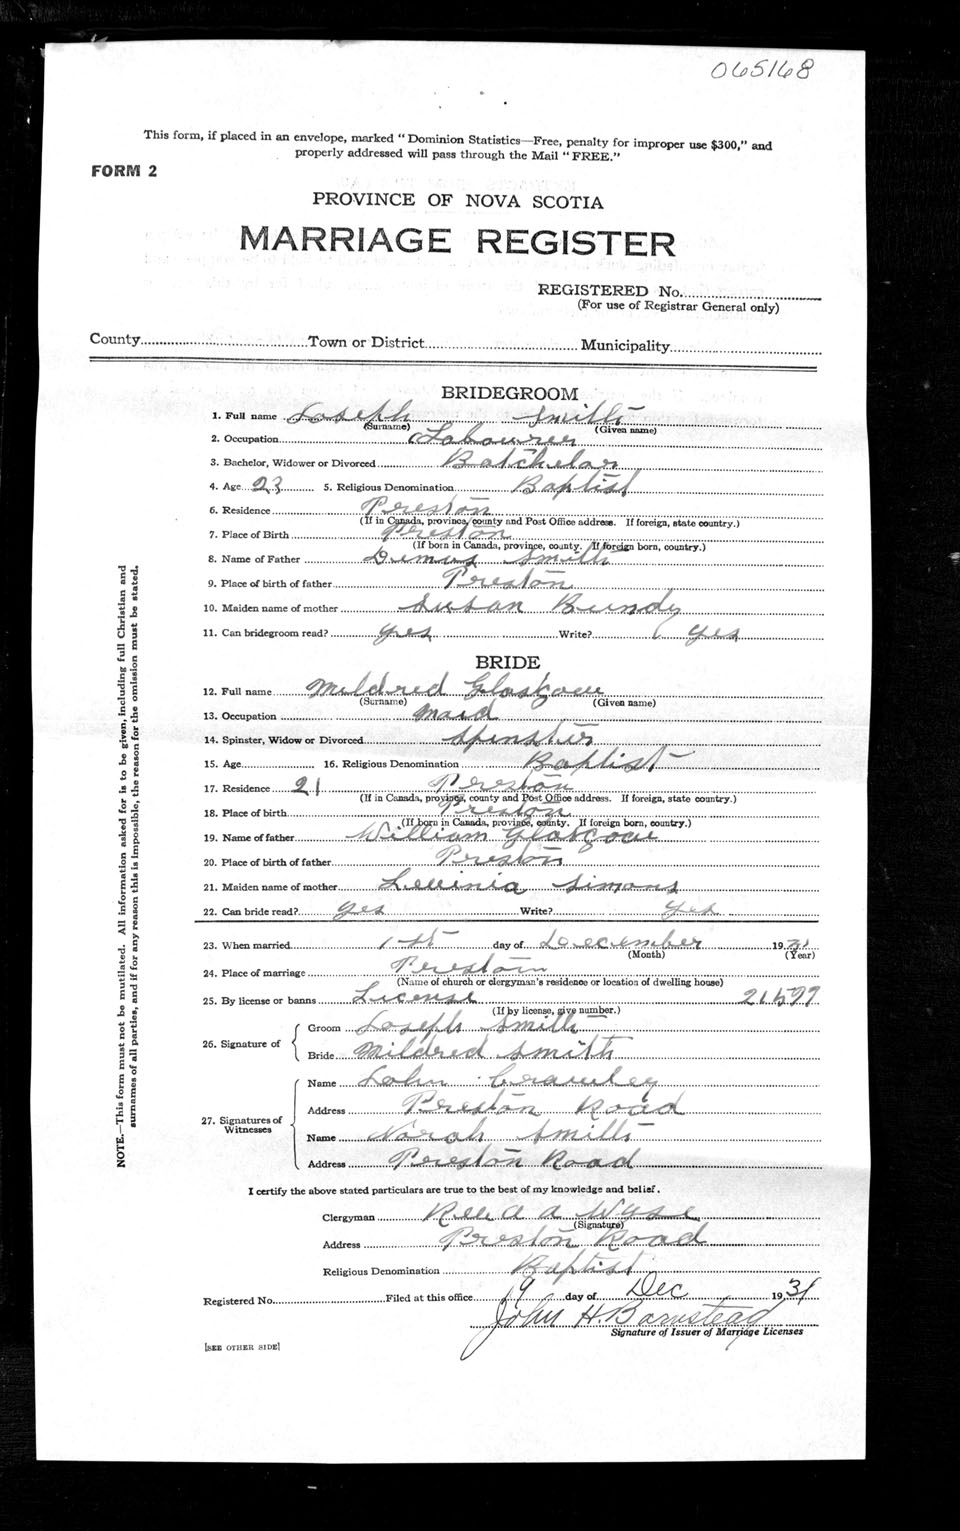 065168
This form, if placed in an envelope, marked "Dominion Statistics—Free, penalty for improper use $300," and
properly addressed will pass through the Mail "FREE."
FORM 2
PROVINCE OF NOVA SCOTIA
MARRIAGE REGISTER
REGISTERED No.
(For use of Registrar General only)
County Town or District Municipality
BRIDEGROOM
1. Full name Joseph Smith
(Surname) (Given name)
2. Occupation Labourer
3. Bachelor, Widower or Divorced Batchelor
4. Age 23 5. Religious Denomination Baptist
6. Residence Preston
(If in Canada, province, county and Post Office address. If foreign, state country.)
7. Place of Birth Preston
(If born in Canada, province, county. If foreign born, country.)
8. Name of Father Smith
9. Place of birth of father Preston
10. Maiden name of mother Susan Bundy
11. Can bridegroom read? yes Write? yes
BRIDE
12. Full name Mildred Glasgow
(Surname) (Given name)
13. Occupation Maid
14. Spinster, Widow or Divorced Spinster
15. Age 16. Religious Denomination Baptist
17. Residence 21 Preston
(If in Canada, province, county and Post Office address. If foreign, state country.)
18. Place of birth Preston
(If born in Canada, province, county. If foreign born, country.)
19. Name of father William Glasgow
20. Place of birth of father Preston
21. Maiden name of mother Levinia Simons
22. Can bride read? yes Write? yes
23. When married 1st day of December 1931
(Month) (Year)
24. Place of marriage Preston
(Name of church or clergyman's residence or location of dwelling house)
25. By license or banns License 21577
(If by license, give number.)
26. Signature of
Groom Joseph Smith
Bride Mildred Smith
27. Signatures of Witnesses
Name John Crawley
Address Preston Road
Name Norah Smith
Address Preston Road
I certify the above stated particulars are true to the best of my knowledge and belief.
Clergyman A Wyse
(Signature)
Address Preston Road
Religious Denomination Baptist
Registered No. Filed at this office 9 day of Dec 1931
John H. Barnstead
Signature of Issuer of Marriage Licenses
[SEE OTHER SIDE]
NOTE.—This form must not be mutilated. All information asked for is to be given, including full Christian and
surnames of all parties, and if for any reason this is impossible, the reason for the omission must be stated.